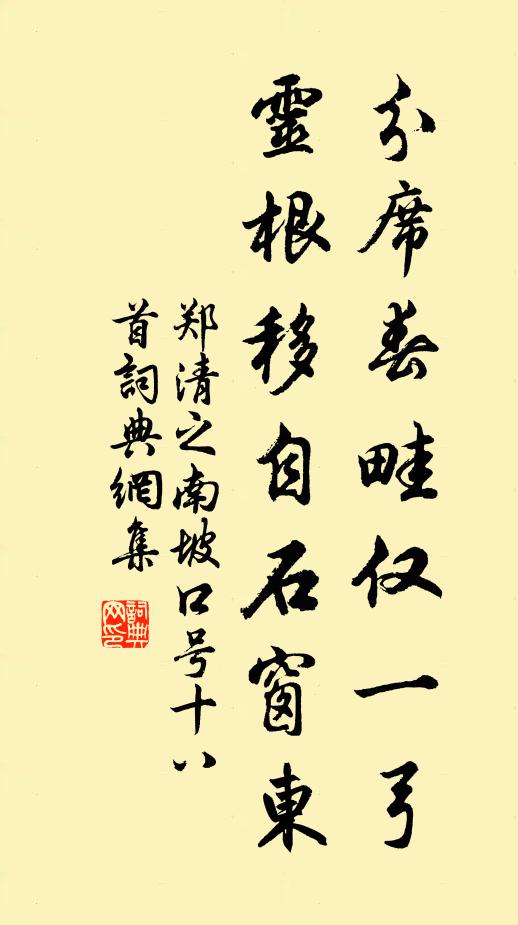 分席春畦仅一弓
靈根移自石窗東
郑清之南坡口号十八
首詞典網集
詞典网印